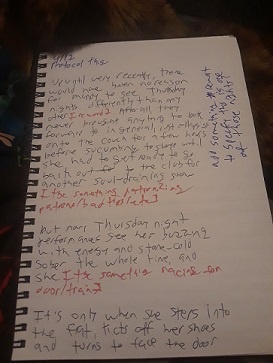 Protocol fing
Up until very recently, there
would have been no reason
for Mindy to see Thursday
nights differently than any
other After all, they
never brought anything to look
forward to in general, just
onto the couch for a few hours
before succumbing to sleep until
she had to get ready to go
back out to the club for
another soul-draining show
I the something
but now Thursday night
performances see her buzzing
with energy and stone-cold
sober the whole time, and
she I the something racing for
door/train
It's only when she steps into
the flat, kicks off her shoes
and turns to face the door
add something
to specify
of those nights